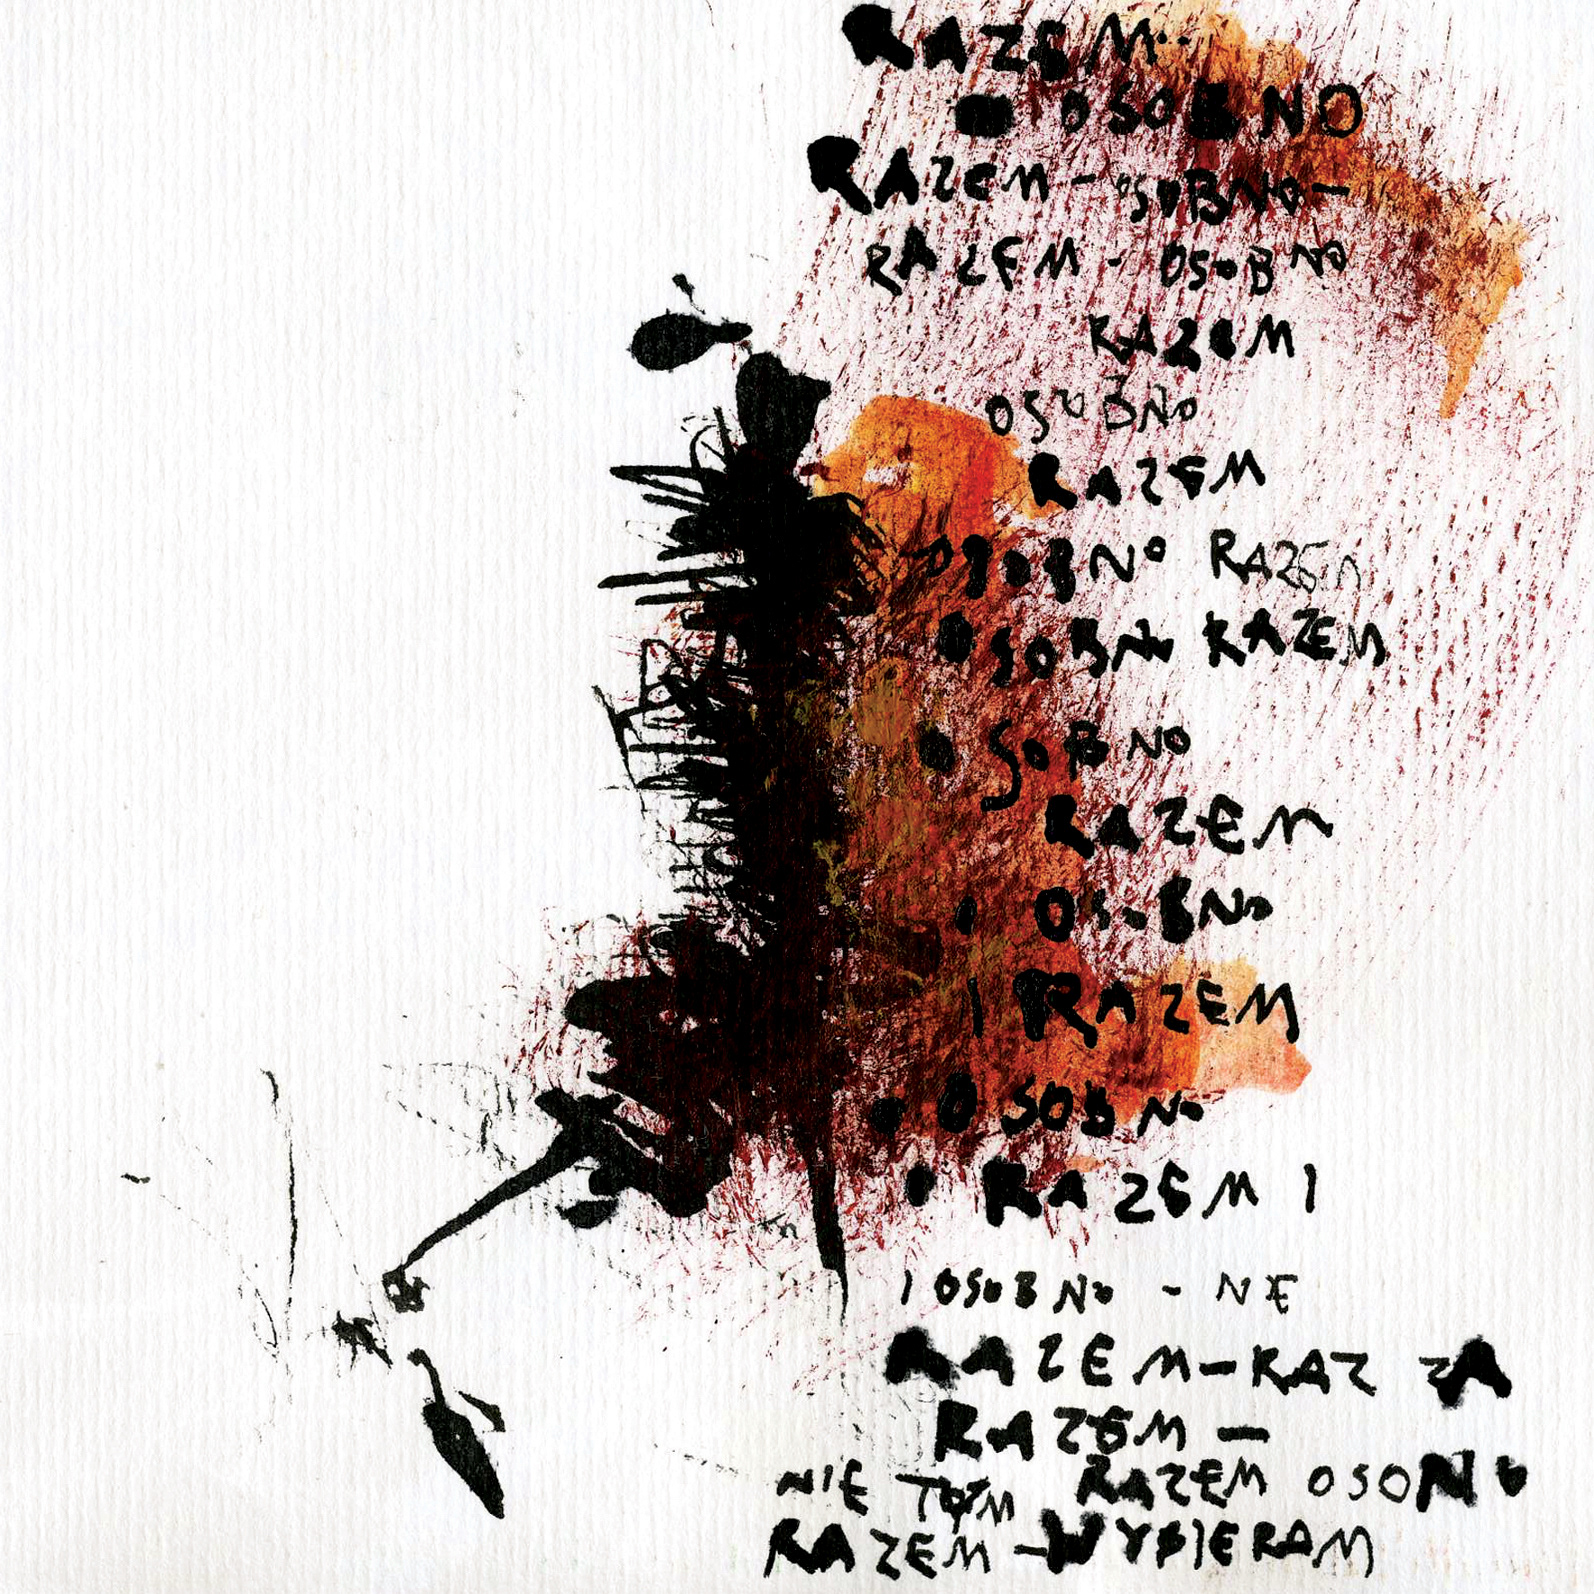 RAZEM..
OSOBNO
RAZEM - OSOBNO -
RAZEM - OSOBNO
RAZEM
OSOBNO
RAZEM
OSOBNO RAZEM
OSOBNO RAZEM
OSOBNO
RAZEM
I OSOBNO
I RAZEM
OSOBNO
RAZEM I
I OSOBNO - NE
RAZEM - RAZ ZA
RAZEM -
NIE TYM RAZEM OSONO
RAZEM - WYBIERAM